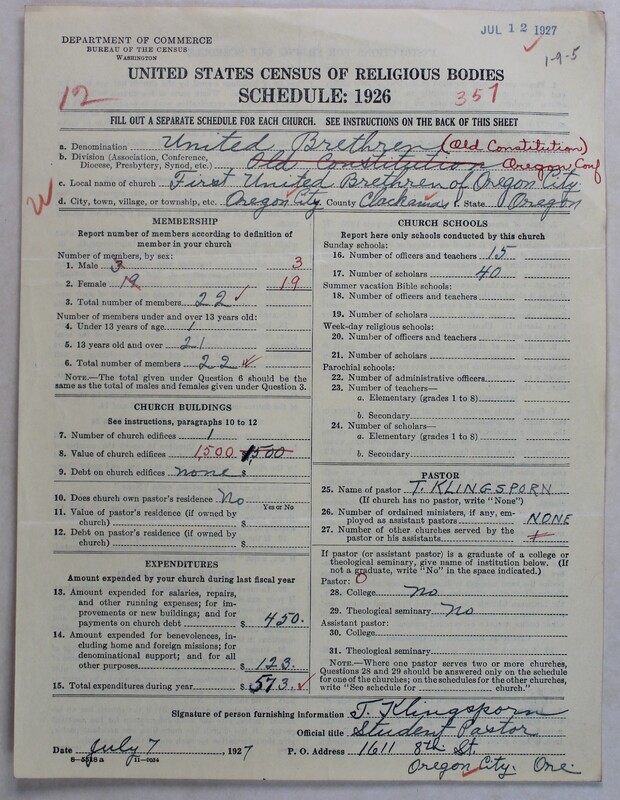 JUL 12 1927
1-9-5
DEPARTMENT OF COMMERCE
BUREAU OF THE CENSUS
WASHINGTON
UNITED STATES CENSUS OF RELIGIOUS BODIES
SCHEDULE: 1926
12
357
FILL OUT A SEPARATE SCHEDULE FOR EACH CHURCH. SEE INSTRUCTIONS ON THE BACK OF THIS SHEET
a. Denomination United Brethren (Old Constitution)
b. Division (Association, Conference, Diocese, Presbytery, Synod, etc.) Old Constitution Oregon Conf
c. Local name of church First United Brethren of Oregon City
d. City, town, village, or township, etc. Oregon City County Clackamas State Oregon
W
MEMBERSHIP
Report number of members according to definition of
member in your church
Number of members, by sex:
1. Male 3 3
2. Female 19 19
3. Total number of members 22
Number of members under and over 13 years old:
4. Under 13 years of age 1
5. 13 years old and over 21
6. Total number of members 22
NOTE.—The total given under Question 6 should be the
same as the total of males and females given under Question 3.
CHURCH BUILDINGS
See instructions, paragraphs 10 to 12
7. Number of church edifices 1
8. Value of church edifices 1,500 1,500
9. Debt on church edifices none $
10. Does church own pastor's residence No
Yes or No
11. Value of pastor's residence (if owned by
church) $
12. Debt on pastor's residence (if owned by
church) $
EXPENDITURES
Amount expended by your church during last fiscal year
13. Amount expended for salaries, repairs,
and other running expenses; for im-
provements or new buildings; and for
payments on church debt $ 450.
14. Amount expended for benevolences,
including home and foreign missions; for
denominational support; and for all
other purposes $ 123.
15. Total expenditures during year $ 573.
CHURCH SCHOOLS
Report here only schools conducted by this church
Sunday schools:
16. Number of officers and teachers 15
17. Number of scholars 40
Summer vacation Bible schools:
18. Number of officers and teachers
19. Number of scholars
Week-day religious schools:
20. Number of officers and teachers
21. Number of scholars
Parochial schools:
22. Number of administrative officers
23. Number of teachers—
a. Elementary (grades 1 to 8)
b. Secondary
24. Number of scholars—
a. Elementary (grades 1 to 8)
b. Secondary
PASTOR
25. Name of pastor T. KLINGSPORN
(If church has no pastor, write "None")
26. Number of ordained ministers, if any, em-
ployed as assistant pastors NONE
27. Number of other churches served by the
pastor or his assistants
If pastor (or assistant pastor) is a graduate of a college or
theological seminary, give name of institution below. (If
not a graduate, write "No" in the space indicated.)
Pastor: 0
28. College no
29. Theological seminary no
Assistant pastor:
30. College
31. Theological seminary
NOTE.—Where one pastor serves two or more churches,
Questions 28 and 29 should be answered only on the schedule
for one of the churches; on the schedules for the other churches,
write "See schedule for church."
Signature of person furnishing information T. Klingsporn
Official title Student Pastor
Date July 7, 1927 P. O. Address 1611 8th St.
8-5518 a 11-9054
Oregon City. Ore.